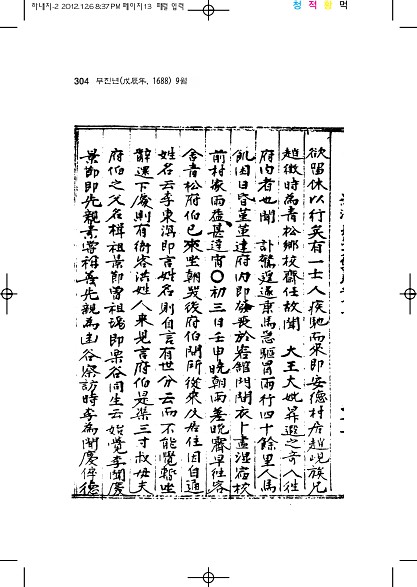 하내지-2 2012.12.6 8:37 PM 페이지13 패럴 입력
청 적 황 먹
304 무진년(戊辰年, 1688) 9월
欲留休以行矣有一士人疾馳而來即安德村居趙 族兄
趙徵時爲青松鄕校齋任故聞 大王大妃昇遐之奇入往
府內者也聞 訃驚遑遽乘馬急驅冒雨行四十餘里人馬
飢困日昏堇堇達府內即 喪於客館門閉衣卜盡濕宿校
前村家雨甚達宵○初三日壬申晚朝雨差晚齋早往客
舍青松府伯已來坐朝哭後府伯問所從來及居住因自通
姓名云李東溟即言姓名則自言有世分云而不能覺暫坐
辭退下處則有衙客洪姓人來見言府伯是渠三寸叔母夫
府伯之父名 祖景節曾祖 即栗谷同生云始覺李聞慶
景節即先親 曾祖 先親爲幽谷察訪時李爲聞慶倅德